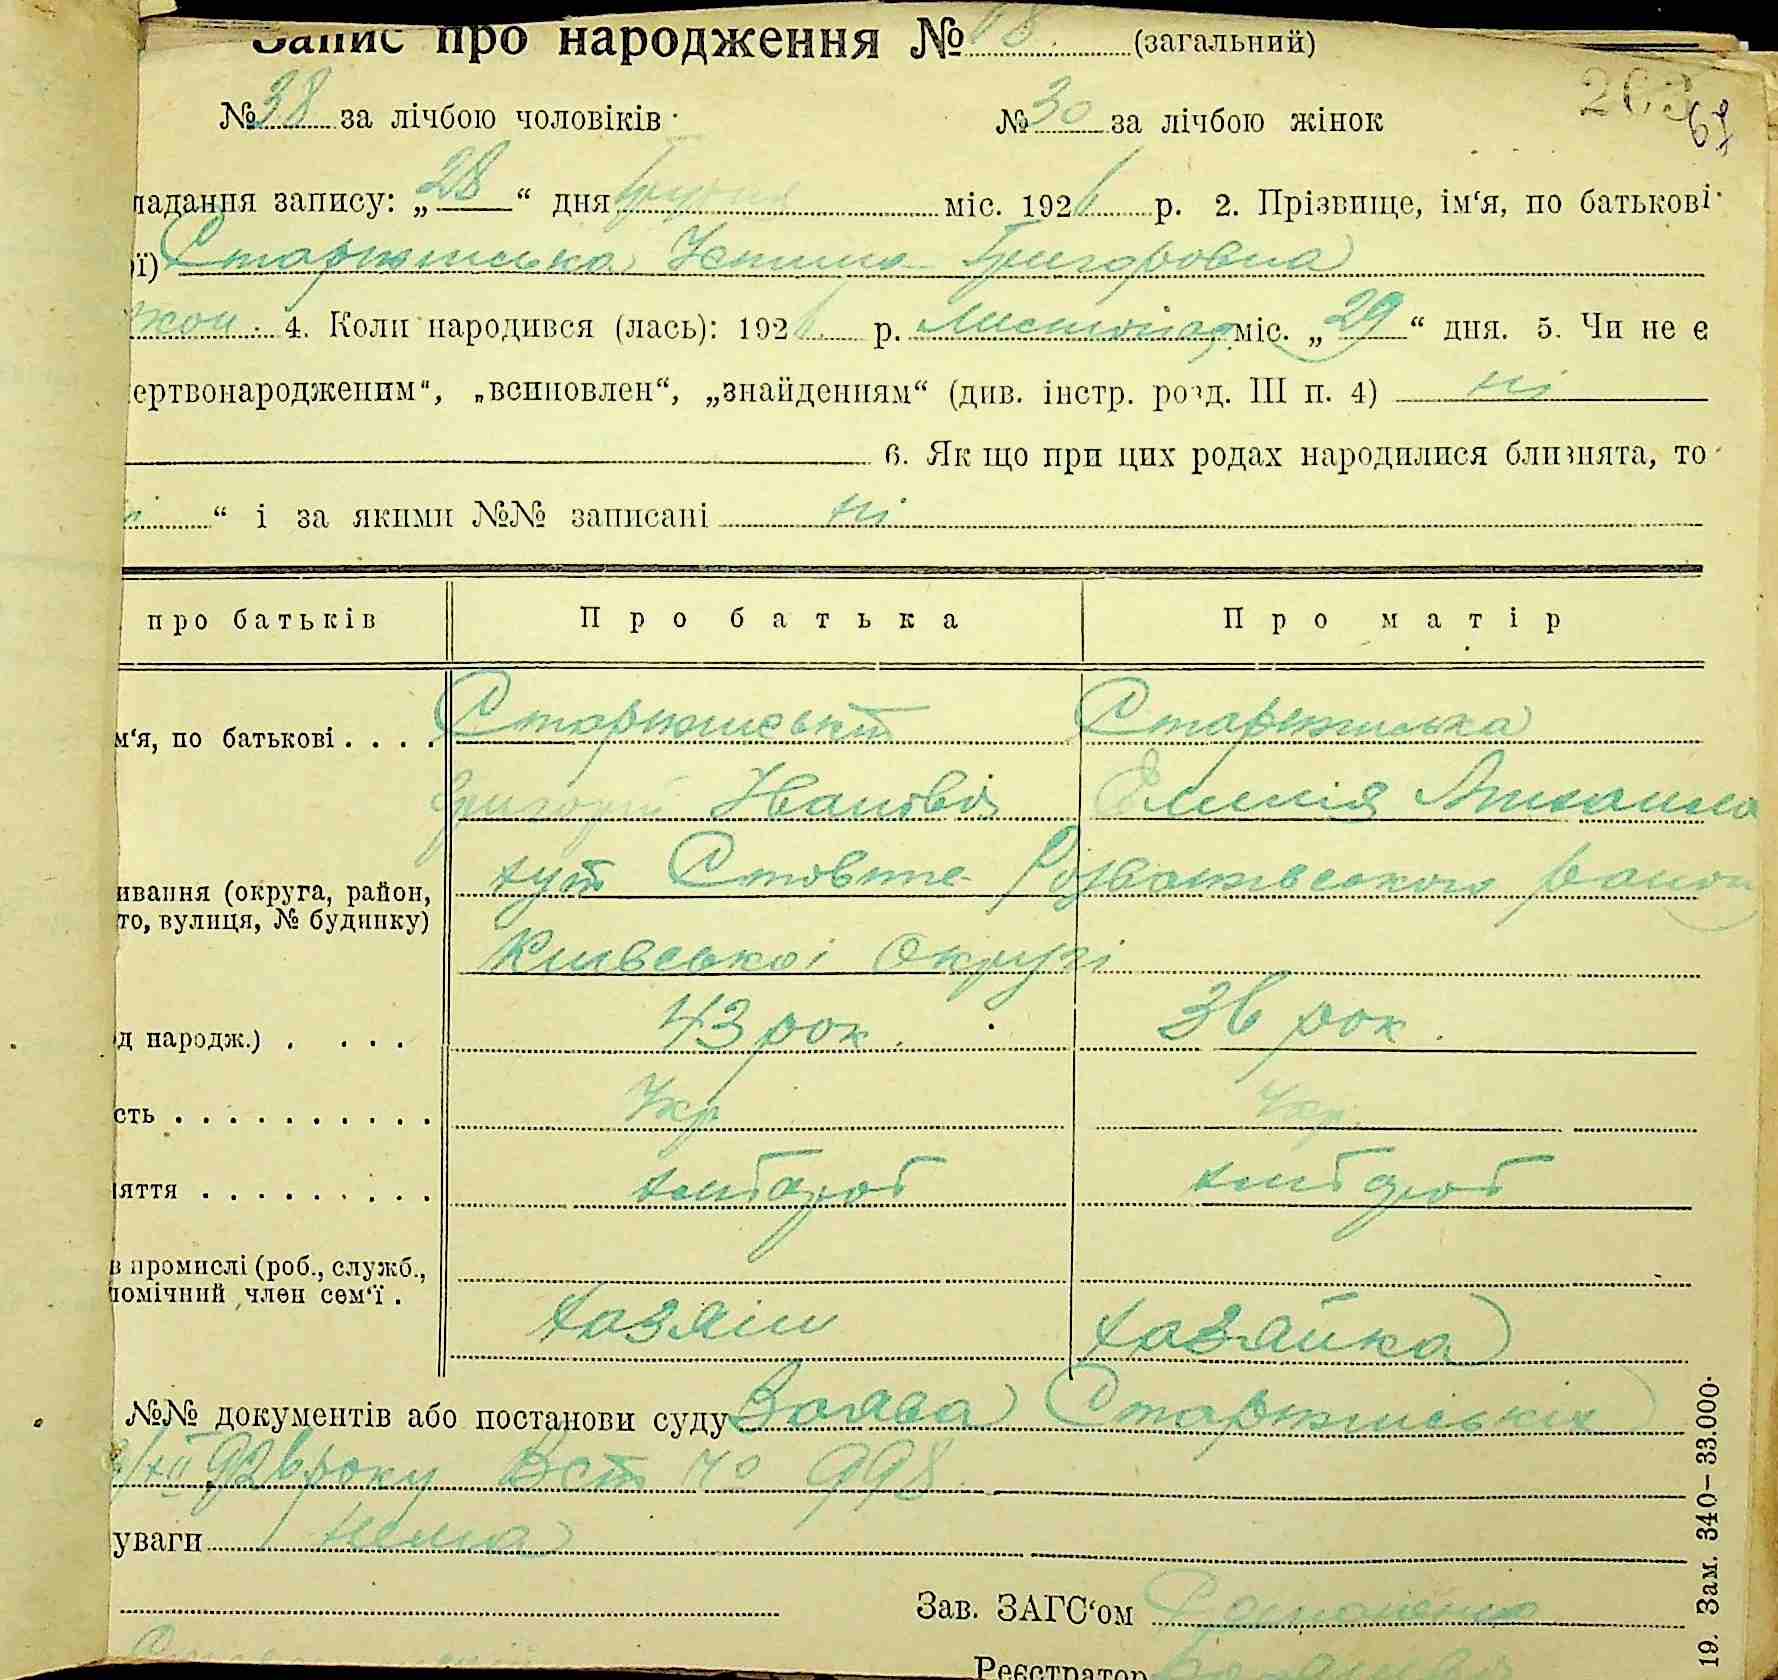 Запис про народження № 68 (загальний)
263
67
№ 38 за лічбою чоловіків № 30 за лічбою жінок
ладання запису: „28“ дня грудня міс. 1926 р. 2. Прізвище, ім‘я, по батькові
ої) Старжинська Устина Григоровна
жон. 4. Коли народився (лась): 1926 р. Листопад міс. „29“ дня. 5. Чи не є
ертвонародженим“, „всиновлен“, „знайденням“ (див. інстр. розд. III п. 4) ні
6. Як що при цих родах народилися близнята, то
“ і за якими №№ записані ні
про батьків Про батька Про матір
м‘я, по батькові . . . . Старжинський Старжинська
Григорій Іванович Емилія
ивання (округа, район, хут Стовпне Розважівського району
то, вулиця, № будинку)
Київської Округі
д народж.) . . . . 43 рок. 36 рок.
сть . . . . . . . . . . Укр Укр.
яття . . . . . . . . . хлібороб хлібороб
в промислі (роб., служб.,
омічний член сем‘ї . хазяїн хазяйка
№№ документів або постанови суду Заява Старжинських
/XII 926 року Вст № 998
уваги нема
Зав. ЗАГС‘ом
Реєстратор
19. Зам. 340–33.000.